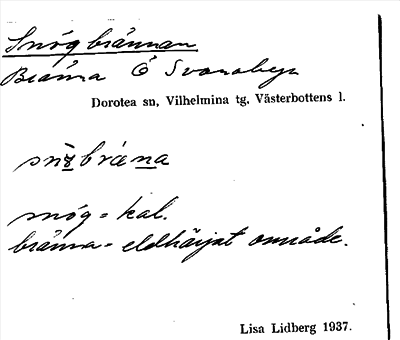 Snógbrännan
Bränna Ö Svanabyn
Dorotea sn, Vilhelmina tg, Västerbottens l.
snóg = kal.
bränna = eldhärjat område.
Lisa Lidberg 1937.